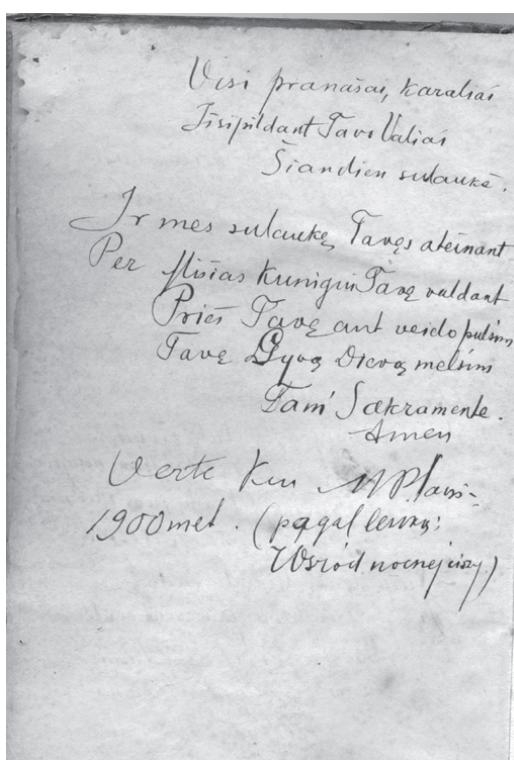 Visi pranašai, Karaliai
Išsipildant Tavo Valiai
Šiandien sulaukė.
Ir mes sulaukę, Tavęs ateinant
Per Mišias Kunigui Tavę valdant
Prieš Tavę ant veido pulsim
Tavę Gyvą Dievą melsim
Tam' Sakramente.
Amen
Verte Kun
1900 met. (pagal lenkų:
Wsród nocnej ciszy.)